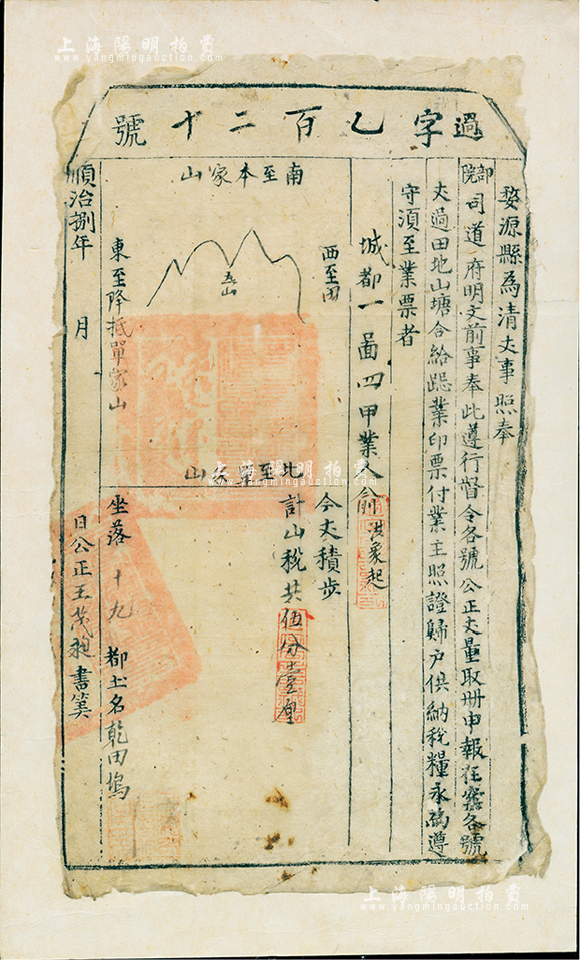 上海陽明拍賣
www.yangmingauction.com
過字乙百二十號
婺源縣為清丈事照奉
部院司道府明文前事奉此遵行督令各號公正丈量取册申報在案各號
丈過田地山塘合給歸業印票付業主照證歸户供納稅糧永為遵
守須至業票者
城都一啚四甲業人俞洪象起
南至本家山
西至田
山
東至降抵單家山
北至單家山
今丈積步
計山稅共伍分壹厘
坐落十九都土名乾田塢
順治捌年 月 日公正王茂 書筭
上海陽明拍賣
www.yangmingauction.com
上海陽明拍賣
www.yangmingauction.com